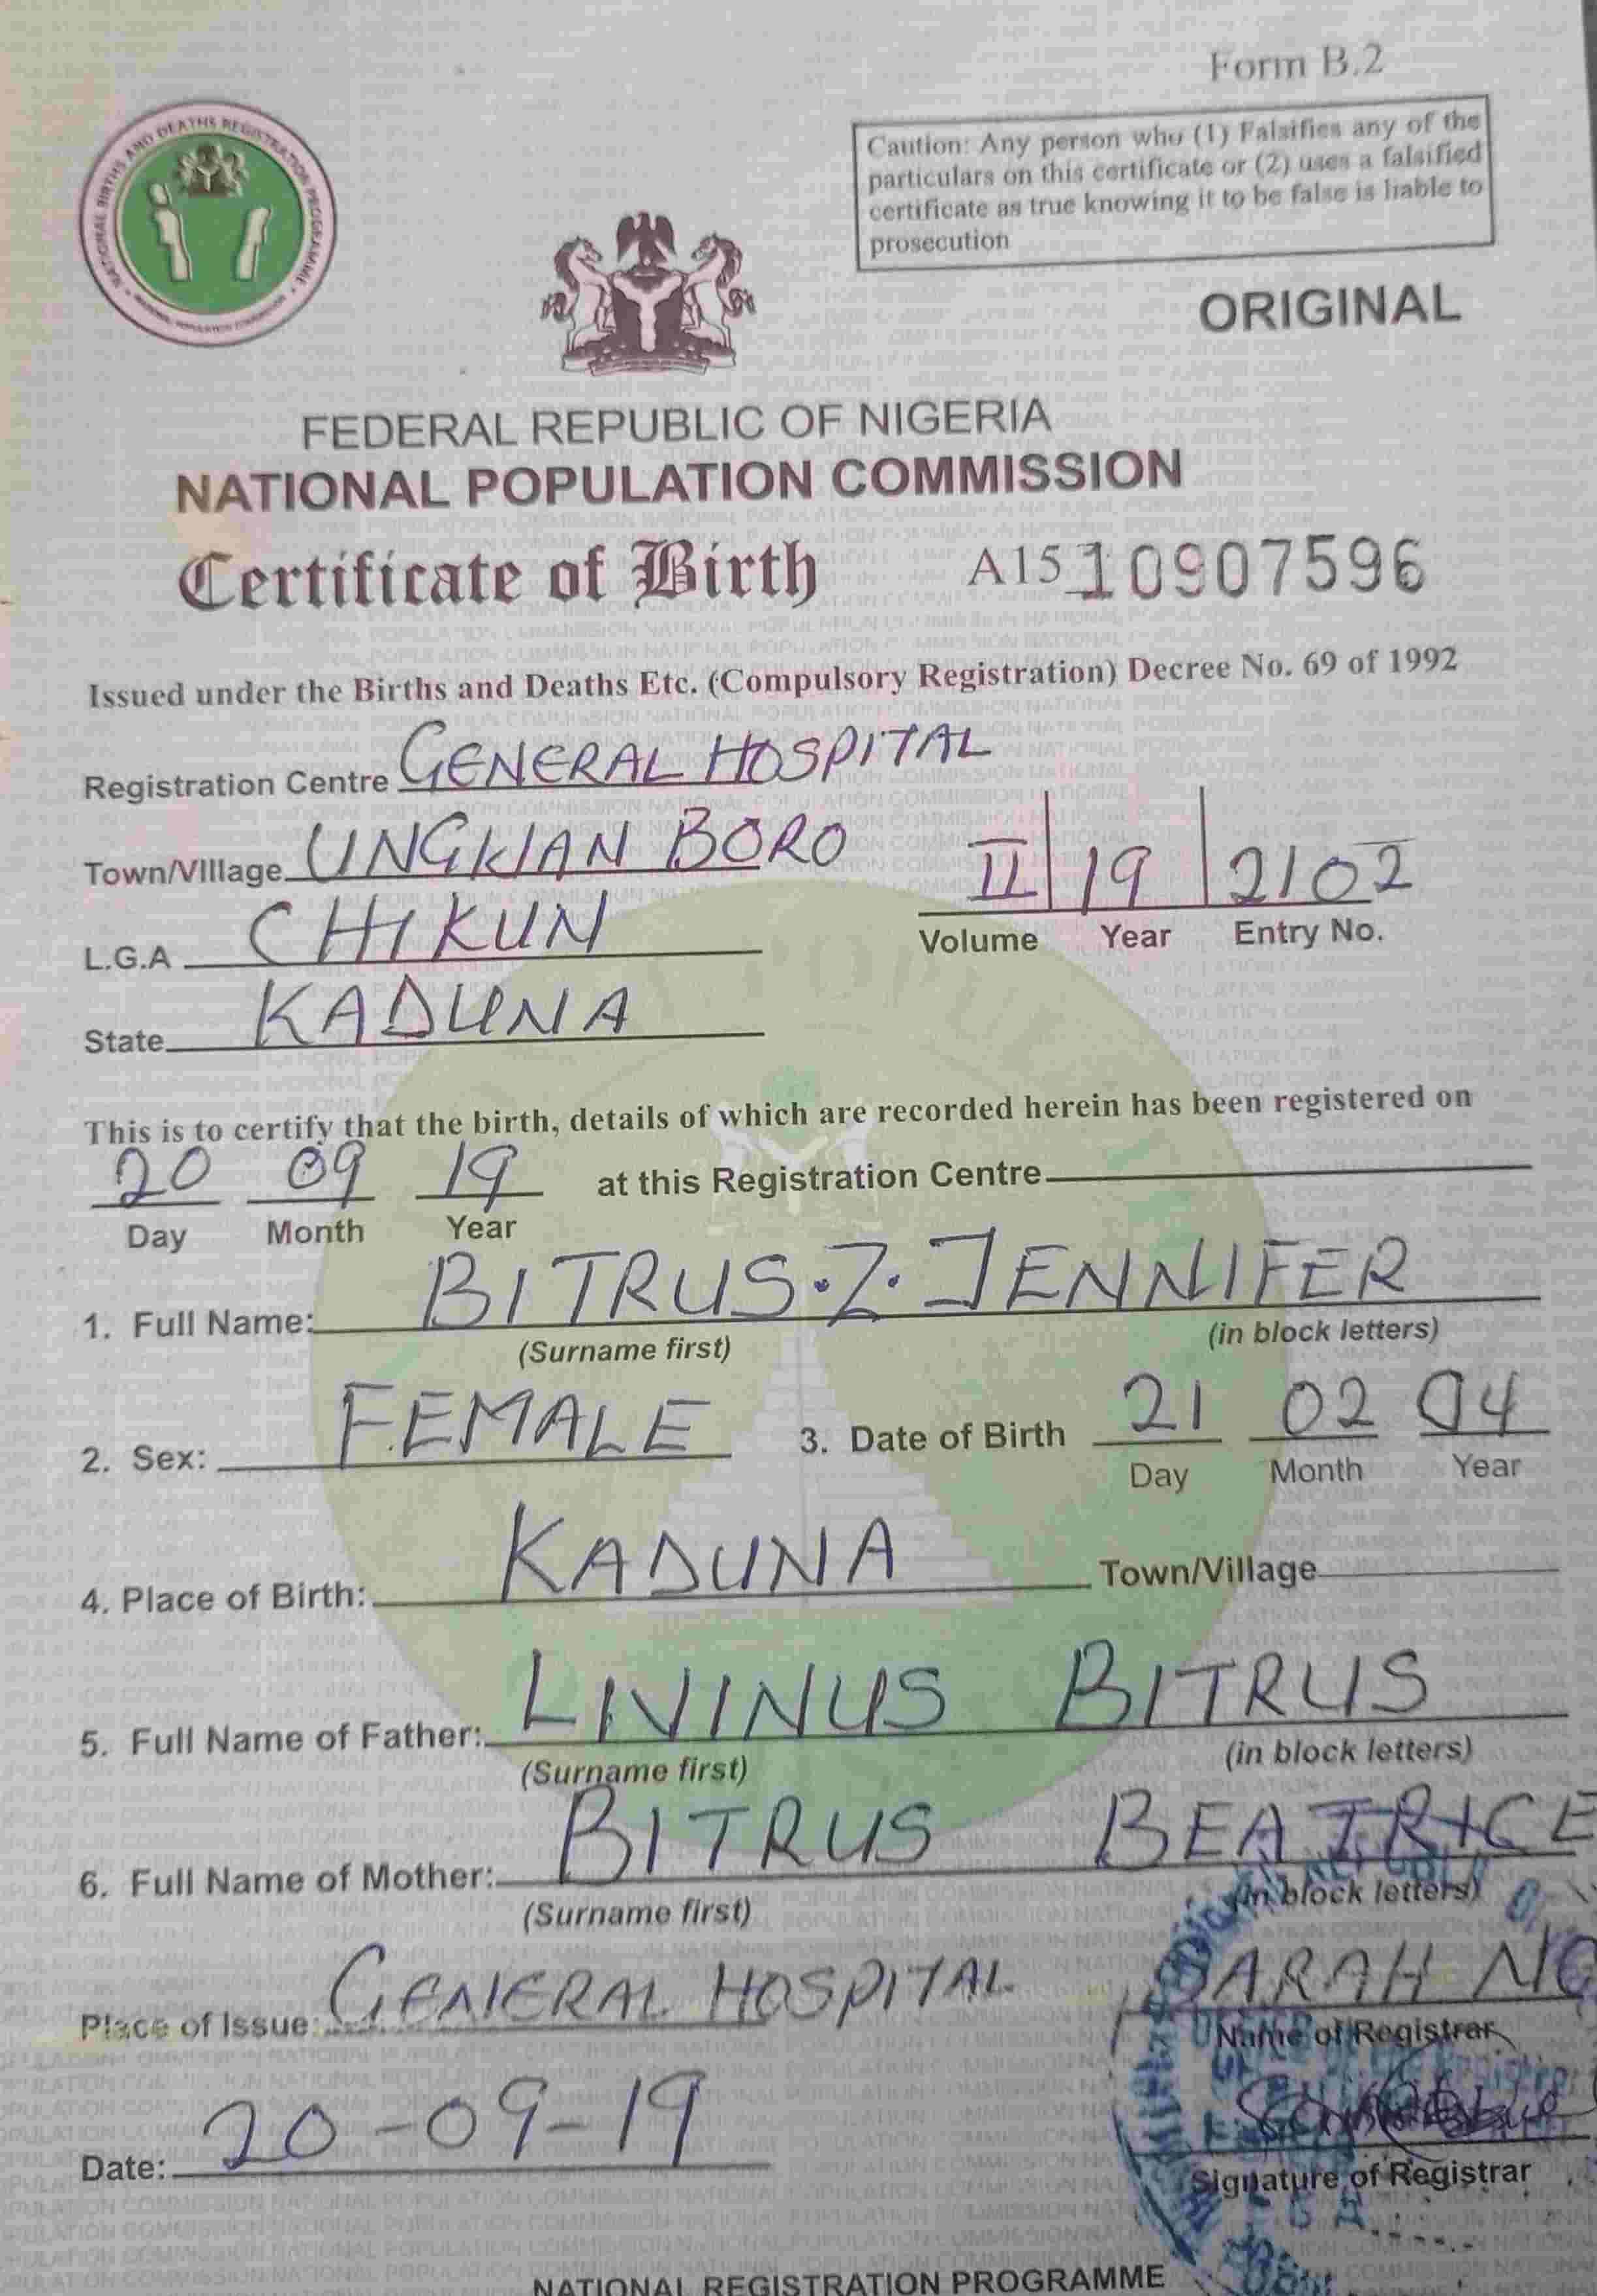 Form B.2
NATIONAL BIRTHS AND DEATHS REGISTRATION PROGRAMME
Caution: Any person who (1) Falsifies any of the
particulars on this certificate or (2) uses a falsified
certificate as true knowing it to be false is liable to
prosecution
ORIGINAL
FEDERAL REPUBLIC OF NIGERIA
NATIONAL POPULATION COMMISSION
Certificate of Birth A15 10907596
Issued under the Births and Deaths Etc. (Compulsory Registration) Decree No. 69 of 1992
Registration Centre GENERAL HOSPITAL
Town/Village UNGWAN BORO
II 19 2102
L.G.A CHIKUN
Volume Year Entry No.
State KADUNA
This is to certify that the birth, details of which are recorded herein has been registered on
20 09 19 at this Registration Centre
Day Month Year
1. Full Name: BITRUS.Z.JENNIFER
(Surname first) (in block letters)
2. Sex: FEMALE 3. Date of Birth 21 02 04
Day Month Year
4. Place of Birth: KADUNA Town/Village
5. Full Name of Father: LIVINUS BITRUS
(Surname first) (in block letters)
6. Full Name of Mother: BITRUS BEATRICE
(Surname first) (in block letters)
Place of Issue: GENERAL HOSPITAL SARAH
Name of Registrar
Date: 20-09-19
Signature of Registrar
NATIONAL REGISTRATION PROGRAMME